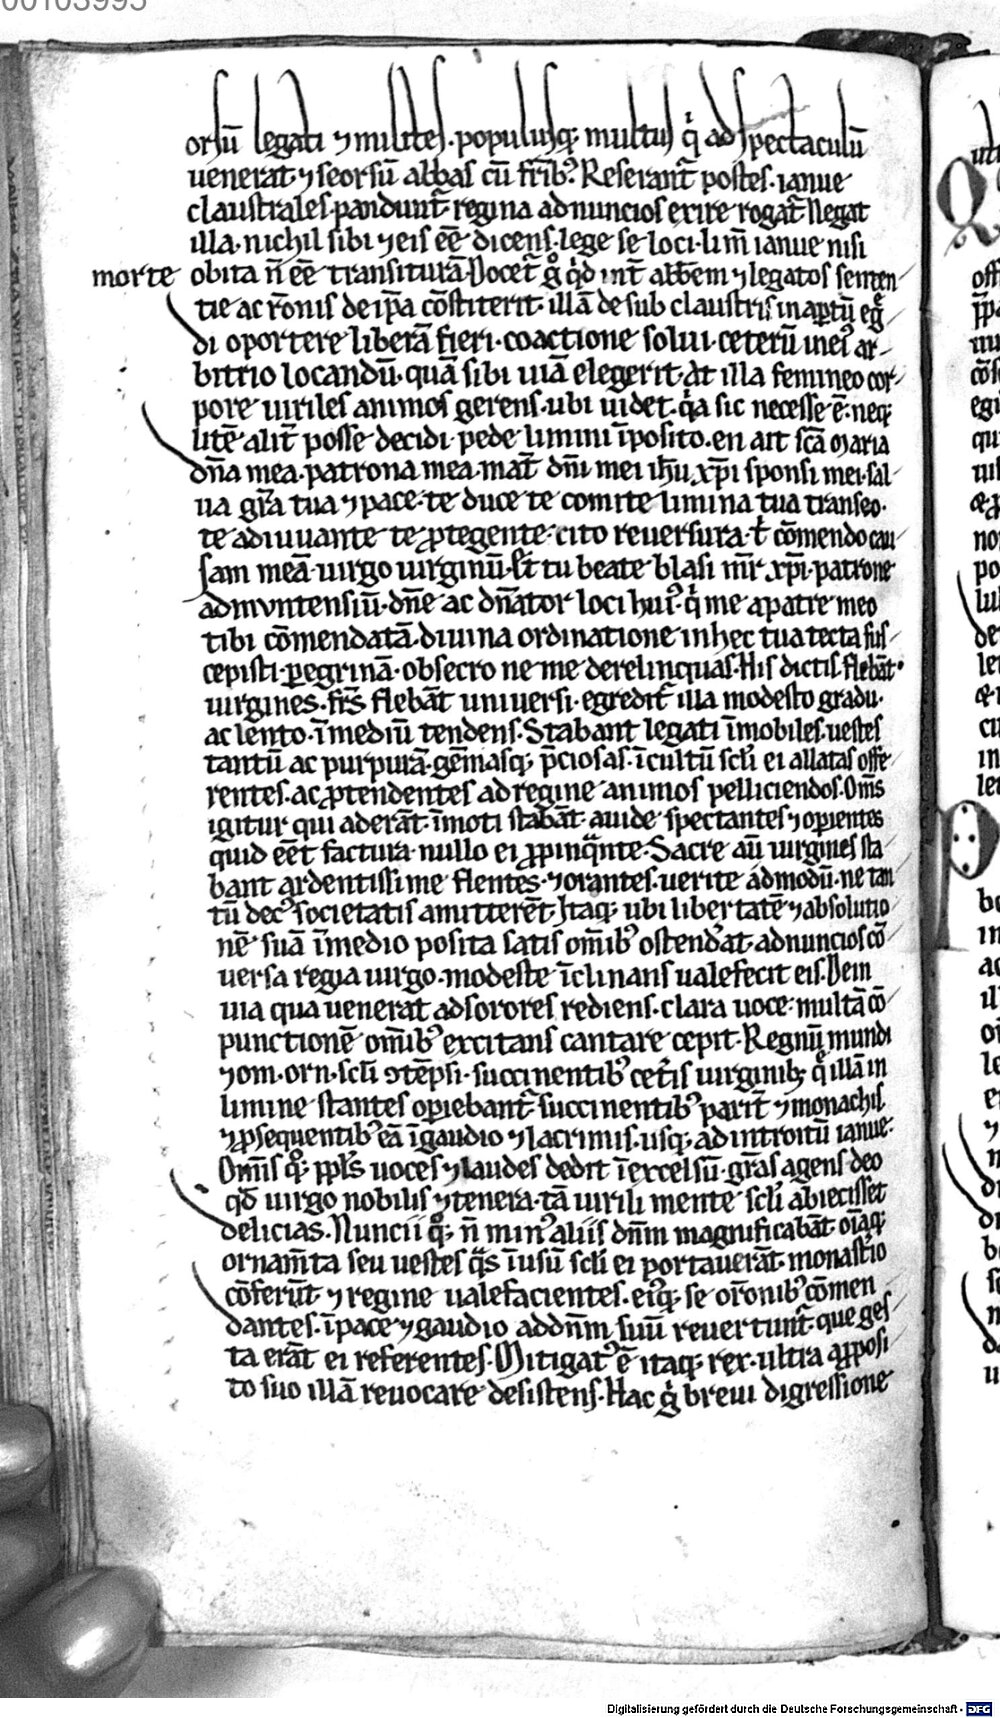 00103995
orsū legati ⁊ milites. populusq; multus q̇ ad spectaculū
uenerat ⁊ seorsū abbas cū fr̄ib᷒. Reserant᷑ postes. ianue
claustrales panduntˉ. regina ad nuncios exire rogat᷑. Negat
illa. nichil sibi ⁊ eis eē dicens. lege se loci. lim̄ ianue nisi
morte obita n̄ eē transiturā. Docet᷑ g̊ q̇d int̄ abb̄em ⁊ legatos senten
tie ac r̄onis de ip̄a cōstiterit. illā de sub claustris in aꝑtū eg̊
di oportere liberā fieri. coactione solui. ceterū in ei᷒ ar
bitrio locandū. quā sibi uiā elegerit. At illa femineo cor
pore uiriles animos gerens. ubi uidet. q̇a sic necesse ē. neq;
litē alit᷑ posse decidi. pede limini īposito. en ait sc̄a Maria
dn̄a mea. patrona mea. mat᷑ dn̄i mei ih̄u xp̄i sponsi mei. sal
ua gr̄a tua ⁊ pace. te duce te comite limina tua transeo.
te adiuuante te ꝓtegente. cito reuersura. t̄ cōmendo cau
sam meā. uirgo uirginū. Et tu beate blasi m̄r xp̄i. patrone
admuntensiū. dn̄e ac dn̄ator loci hui᷒. q̇ me a patre meo
tibi cōmendatā. diuina ordinatione in hec tua tecta sus
cepisti. ꝑegrinā. obsecro ne me derelinquas. His dictis flebāt
uirgines. fr̄s flebāt uniuersi. egredit᷑ illa modesto gradu.
ac lento. ī mediū tendens. Stabant legati īmobiles. uestes
tantū ac purpurā. gēmasq; p̄ciosas. ī cultū scl̄i ei allatas offe
rentes. ac ꝓtendentes ad regine animos pelliciendos. Om̄s
igitur qui aderāt. īmoti stabāt. auide spectantes ⁊ opientes
quid eēt factura. nullo ei ꝓpinq̇nte. Sacre aū uirgines sta
bant ardentissime flentes. ⁊ orantes. uerite admodū. ne tan
tū dec᷒ societatis amitterēt. Itaq; ubi libertatē ⁊ absolutio
nē suā ī medio posita satis om̄ib᷒ ostend̄at. ad nuncios cō
uersa regia uirgo. modeste īclinans ualefecit eis. Dein
uia qua uenerat ad sorores rediens. clara uoce. multā cō
punctionē om̄ib᷒ excitans cantare cepit. Regnū mundi
⁊ om. orn. scl̄i ↄtēpsi. succinentib᷒ cet᷑is uirginib; q̇ illā in
limine stantes opiebant᷑. succinentib᷒ parit᷑ ⁊ monachis
⁊ ꝓsequentib᷒ eā ī gaudio ⁊ lacrimis. usq; ad introitū ianue.
Om̄is q̊; pp̄ls uoces ⁊ laudes dedit ī excelsū. gr̄as agens deo
qd̄ uirgo nobilis ⁊ tenera. tā uirili mente scl̄i abiecisset
delicias. Nuncii q̊; n̄ min᷒ aliis dn̄m magnificabāt. oīaq;
ornam̄ta seu uestes q̇s ī usū scl̄i ei portauerāt. monast᷑io
cōferūt. ⁊ regine ualefacientes. ei᷒q; se or̄onib᷒ cōmen
dantes. ī pace ⁊ gaudio ad dn̄m suū reuertunt᷑. que ges
ta erāt ei referentes. Mitigat᷒ ē itaq; rex. ultra a ꝓposi
to suo illā reuocare desistens. Hac g̊ breui digressione
Digitalisierung gefördert durch die Deutsche Forschungsgemeinschaft - DFG